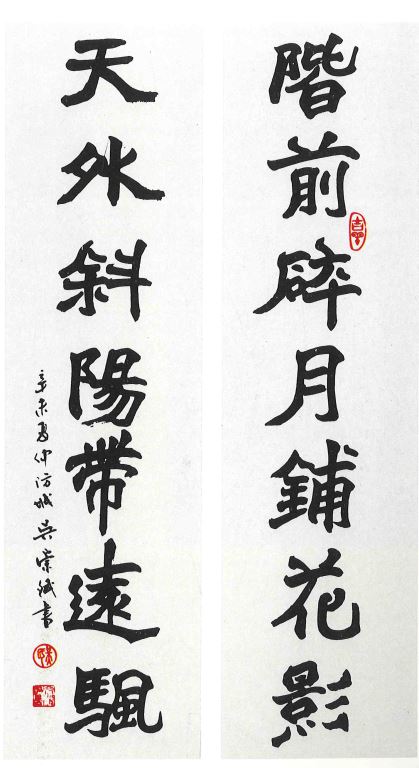 階前碎月鋪花影
天外斜陽帶遠颿
辛未夏仲防城吳崇書